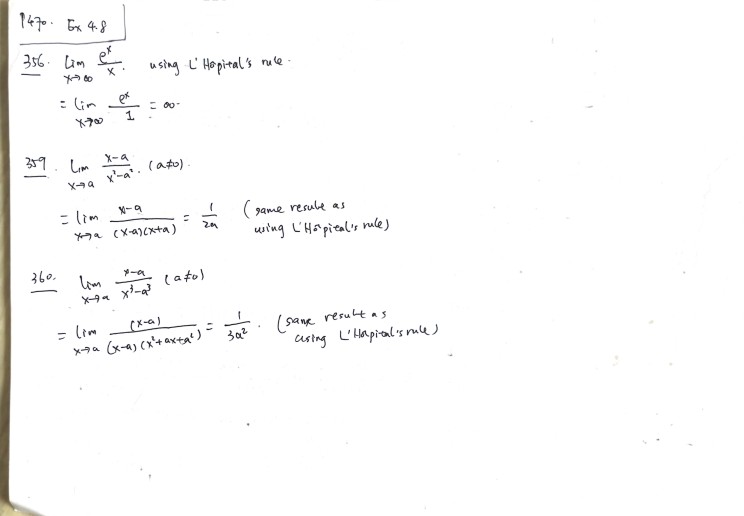 P470. Ex 4.8
356. lim x→∞ e^x / x. using L'Hopital's rule.
= lim x→∞ e^x / 1 = ∞.
359. lim x→a (x-a) / (x²-a²). (a≠0).
= lim x→a (x-a) / ((x-a)(x+a)) = 1 / 2a (same result as using L'Hopital's rule)
360. lim x→a (x-a) / (x³-a³) (a≠0)
= lim x→a (x-a) / ((x-a)(x²+ax+a²)) = 1 / 3a². (same result as using L'Hopital's rule)